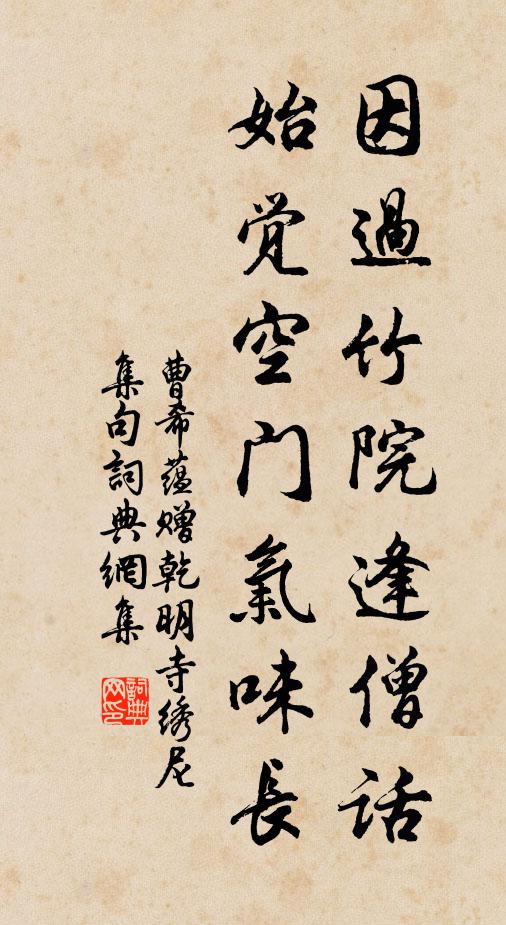 因過竹院逢僧話
始觉空门氣味長
曹希蕴赠乾明寺绣尼
集句詞典網集
詞典
网印